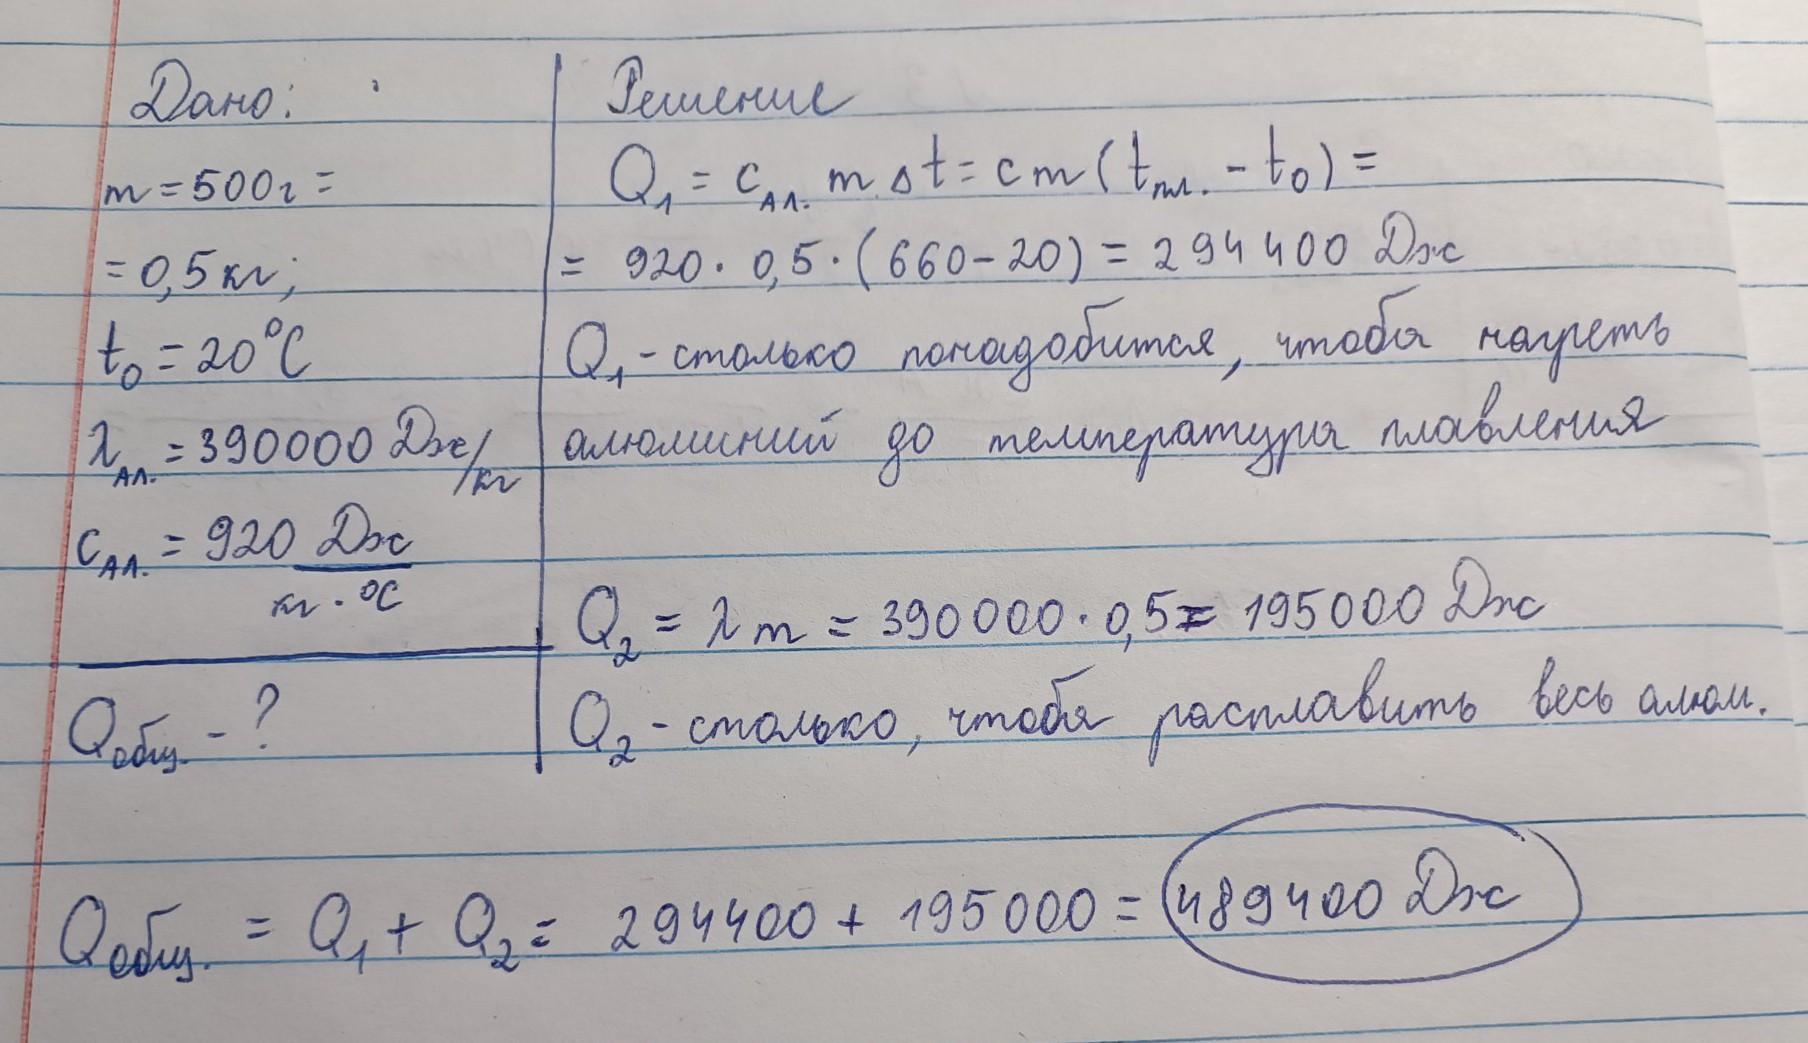 Дано:
m = 500г =
= 0,5 кг;
t₀ = 20°C
λ_Ал. = 390000 Дж/кг
c_Ал. = 920 Дж
кг · °C
Q_общ. - ?
Решение
Q₁ = c_Ал. m Δt = cm (t_пл. - t₀) =
= 920 · 0,5 · (660 - 20) = 294 400 Дж
Q₁ - столько понадобится, чтобы нагреть
алюминий до температуры плавления
Q₂ = λ m = 390 000 · 0,5 = 195000 Дж
Q₂ - столько, чтобы расплавить весь алюм.
Q_общ. = Q₁ + Q₂ = 294400 + 195 000 = 489400 Дж